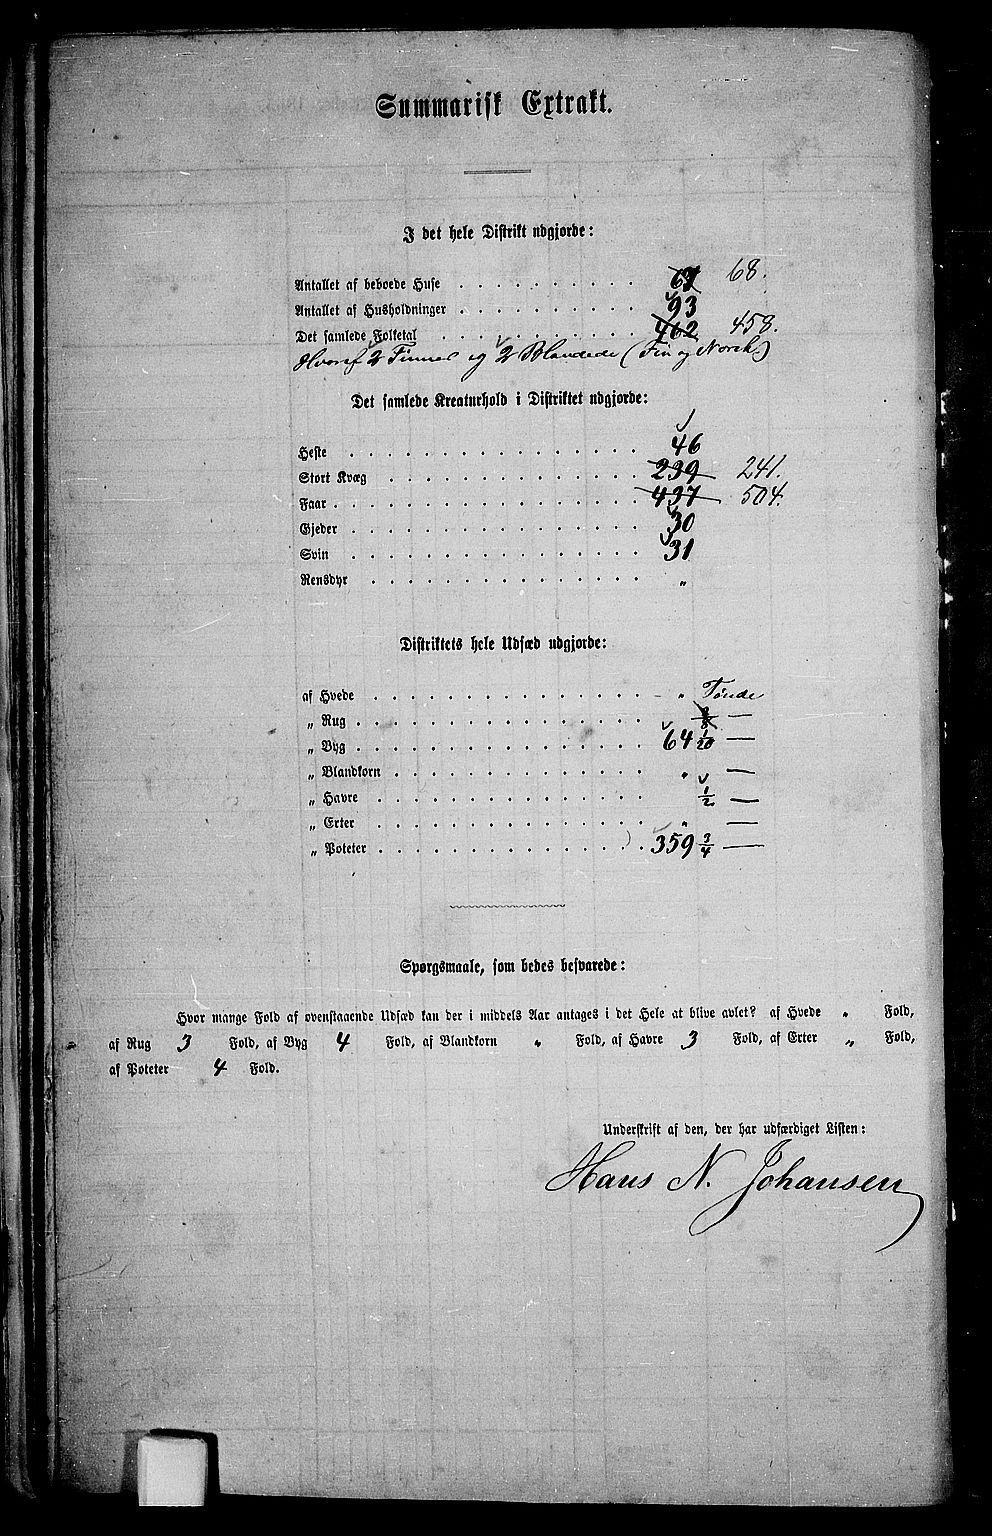 Summarisk Extrakt.
I det hele Distrikt udgjorde:
Antallet af beboede Huse . . . . . . . . . . 68.
Antallet af Husholdninger . . . . . . . . . . 93
Det samlede Folketal . . . . . . . . . . 462 458.
Hvoraf 2 Finner og 2 Blandede (Fin og Norsk)
Det samlede Kreaturhold i Distriktet udgjorde:
Heste . . . . . . . . . . 46
Stort Kvæg . . . . . . . . . . 239 241.
Faar . . . . . . . . . . 437 504.
Gjeder . . . . . . . . . . 30
Svin . . . . . . . . . . 31
Rensdyr . . . . . . . . . . „
Distriktets hele Udsæd udgjorde:
af Hvede . . . . . . . . . . „ Tønde
„ Rug . . . . . . . . . . —
„ Byg . . . . . . . . . . 64 1/20 —
„ Blandkorn . . . . . . . . . . „ —
„ Havre . . . . . . . . . . 1/2 —
„ Erter . . . . . . . . . . „ —
„ Poteter . . . . . . . . . . 359 3/4 —
Spørgsmaale, som bedes besvarede:
Hvor mange Fold af ovenstaaende Udsæd kan der i middels Aar antages i det Hele at blive avlet? af Hvede „ Fold,
af Rug 3 Fold, af Byg 4 Fold, af Blandkorn „ Fold, af Havre 3 Fold, af Erter „ Fold,
af Poteter 4 Fold.
Underskrift af den, der har udfærdiget Listen:
Hans N. Johansen